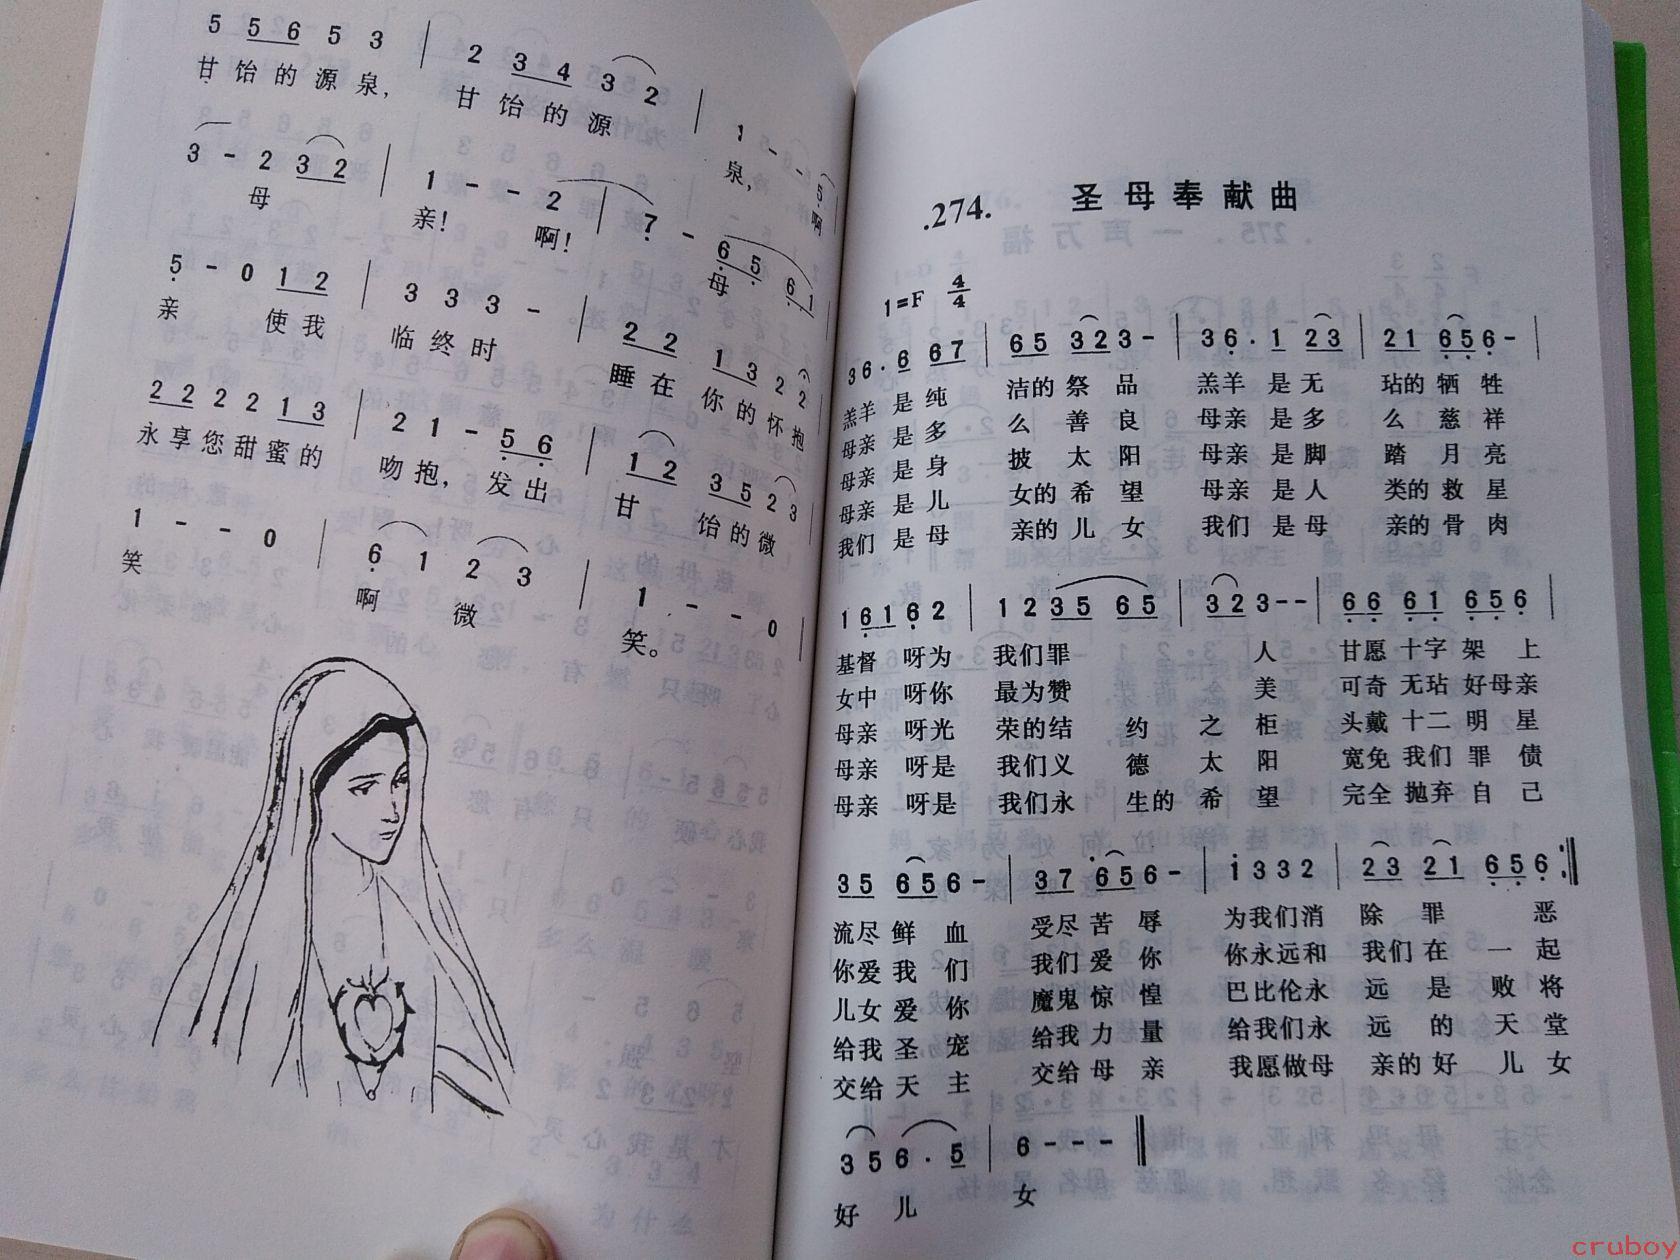 5 5 6 5 3 | 2 3 4 3 2 |
甘饴的源泉, 甘饴的源
1 - - 5
泉, 啊
3 - 2 3 2 | 1 - - 2 | 7 - 6 5 6 1
母 亲! 啊! 母
5 - 0 1 2 | 3 3 3 - | 2 2 1 3 2 2
亲 使我 临终时 睡在你的怀抱
2 2 2 2 1 3 | 2 1 - 5 6 | 1 2 3 5 2 3
永享您甜蜜的 吻抱, 发出 甘 饴的微
1 - - 0 | 6 1 2 3 | 1 - - 0
笑 啊 微 笑。
.274. 圣母奉献曲
1=F 4/4
3 6. 6 6 7 | 6 5 3 2 3 - | 3 6. 1 2 3 | 2 1 6 5 6 - |
羔羊是纯 洁的祭品 羔羊是无 玷的牺牲
母亲是多 么善良 母亲是多 么慈祥
母亲是身 披太阳 母亲是脚 踏月亮
母亲是儿 女的希望 母亲是人 类的救星
我们是母 亲的儿女 我们是母 亲的骨肉
1 6 1 6 2 | 1 2 3 5 6 5 | 3 2 3 - - | 6 6 6 1 6 5 6 |
基督呀为 我们罪 人 甘愿十字架上
女中呀你 最为赞 美 可奇无玷好母亲
母亲呀光 荣的结约 之柜 头戴十二明星
母亲呀是 我们义德 太阳 宽免我们罪债
母亲呀是 我们永生的 希望 完全抛弃自己
3 5 6 5 6 - | 3 7 6 5 6 - | i 3 3 2 | 2 3 2 1 6 5 6 :||
流尽鲜血 受尽苦辱 为我们消 除罪恶
你爱我们 我们爱你 你永远和 我们在一起
儿女爱你 魔鬼惊惶 巴比伦永 远是败将
给我圣宠 给我力量 给我们永 远的天堂
交给天主 交给母亲 我愿做母 亲的好儿女
3 5 6 . 5 | 6 - - - ||
好 儿 女
cruboy